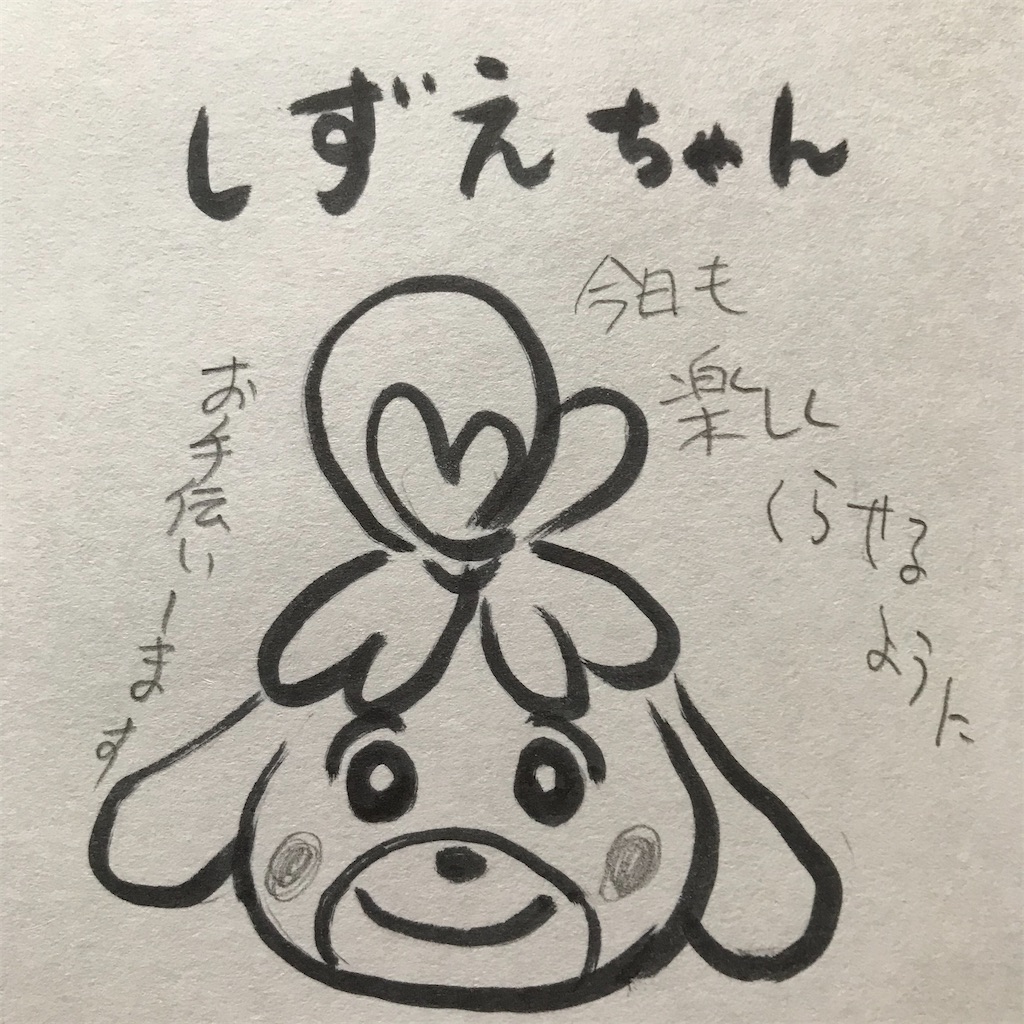 しずえちゃん
今日も
楽しく
くらせる
ように
お手伝い
します